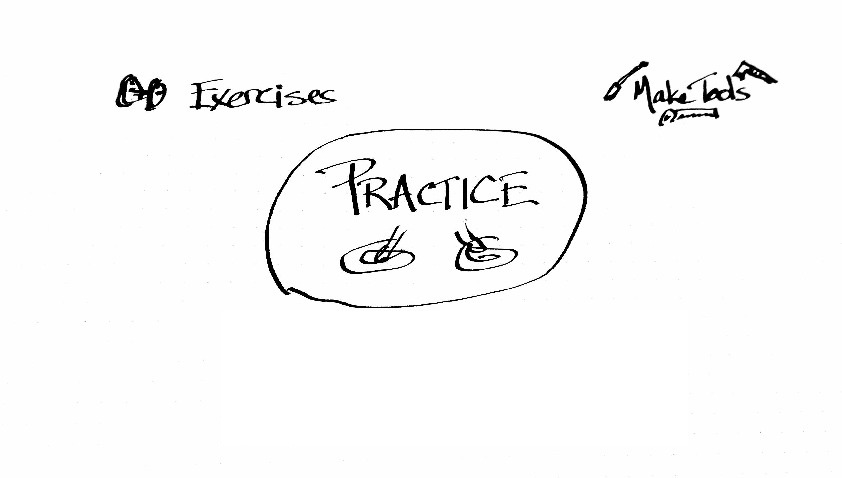 Exercises
Make Tools
PRACTICE